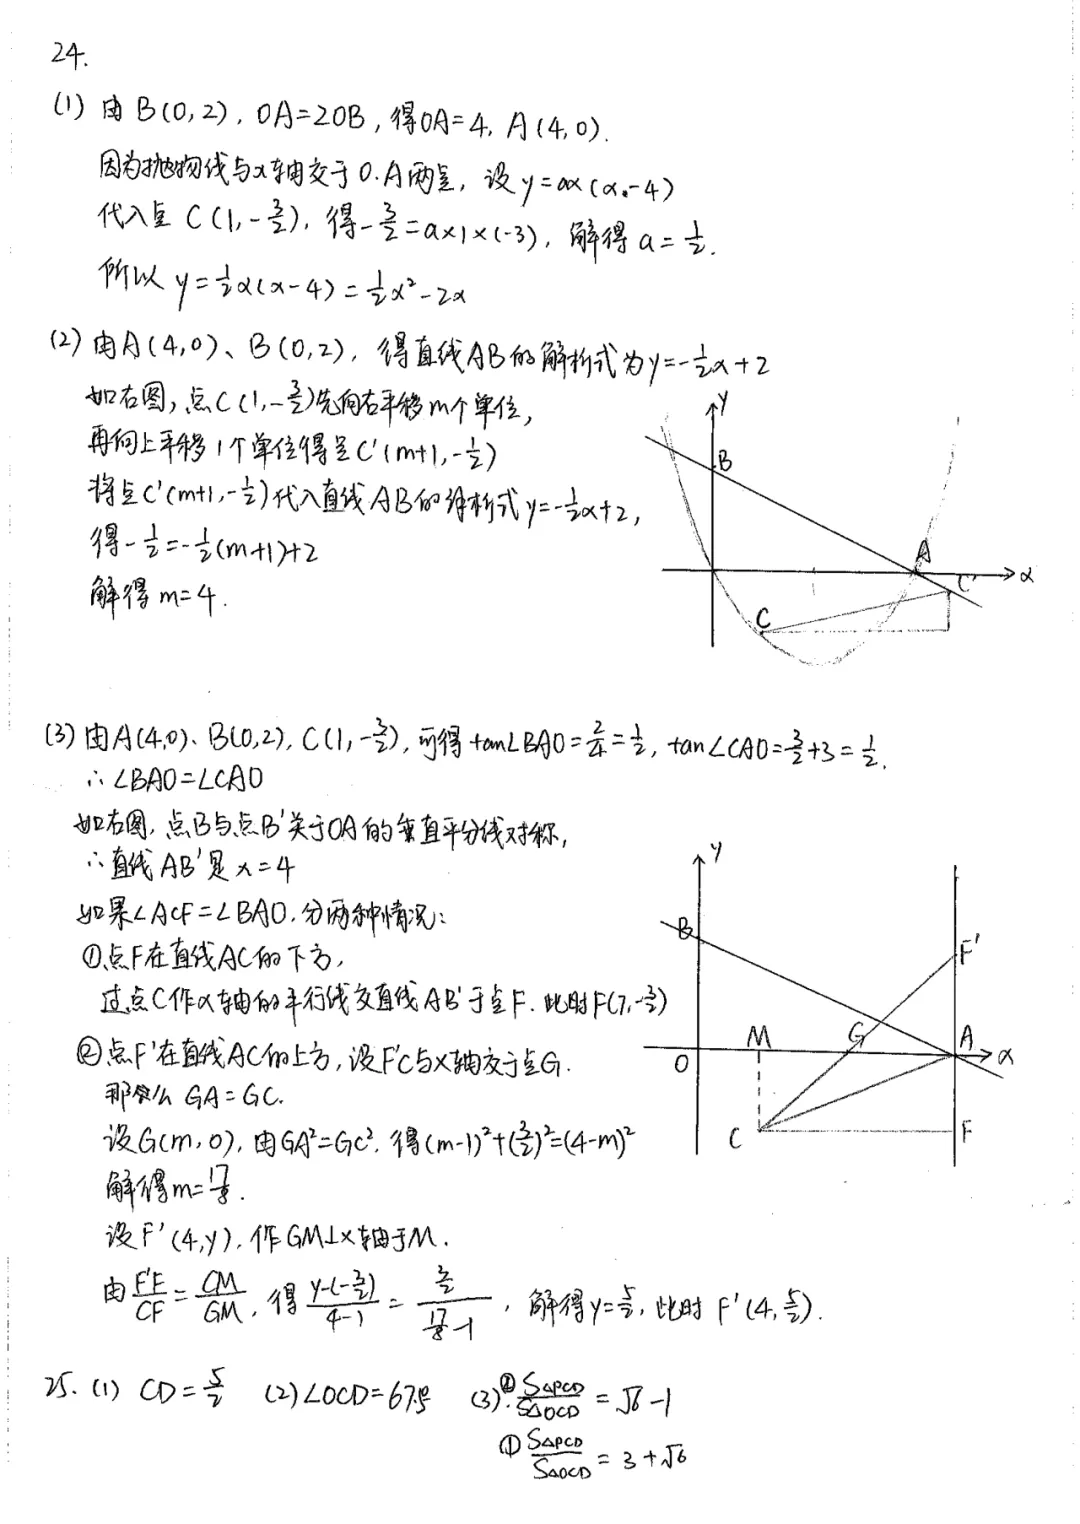 24.
(1) 由B(0,2), OA=2OB, 得OA=4, A(4,0).
因为抛物线与x轴交于O.A两点, 设y=ax(x-4)
代入点C(1,-3/2), 得-3/2=a×1×(-3), 解得a=1/2.
所以 y=1/2x(x-4)=1/2x²-2x
(2) 由A(4,0)、B(0,2), 得直线AB的解析式为y=-1/2x+2
如右图, 点C(1,-3/2)先向右平移m个单位,
再向上平移1个单位得点C'(m+1,-1/2)
将点C'(m+1,-1/2)代入直线AB的解析式y=-1/2x+2,
得-1/2=-1/2(m+1)+2
解得m=4.
y
B
A
C'
x
C
(3) 由A(4,0)、B(0,2), C(1,-3/2), 可得tan∠BAO=2/4=1/2, tan∠CAO=3/2÷3=1/2.
∴∠BAO=∠CAO
如右图, 点B与点B'关于OA的垂直平分线对称,
∴直线AB'是x=4
如果∠ACF=∠BAO, 分两种情况:
①点F在直线AC的下方,
过点C作x轴的平行线交直线AB'于点F. 此时F(7,-3/2)
②点F'在直线AC的上方, 设F'C与x轴交于点G.
那么GA=GC.
设G(m,0), 由GA²=GC², 得(m-1)²+(3/2)²=(4-m)²
解得m=17/8.
设F'(4,y), 作GM⊥x轴于M.
由F'F/CF=CM/GM, 得(y-(-3/2))/(4-1)=(3/2)/(17/8-1), 解得y=5/2, 此时F'(4,5/2).
y
B
F'
M
G
A
x
O
C
F
25. (1) CD=5/2 (2)∠OCD=67.5° (3).② S△PCD/S△OCD=√6-1
① S△PCD/S△OCD=3+√6